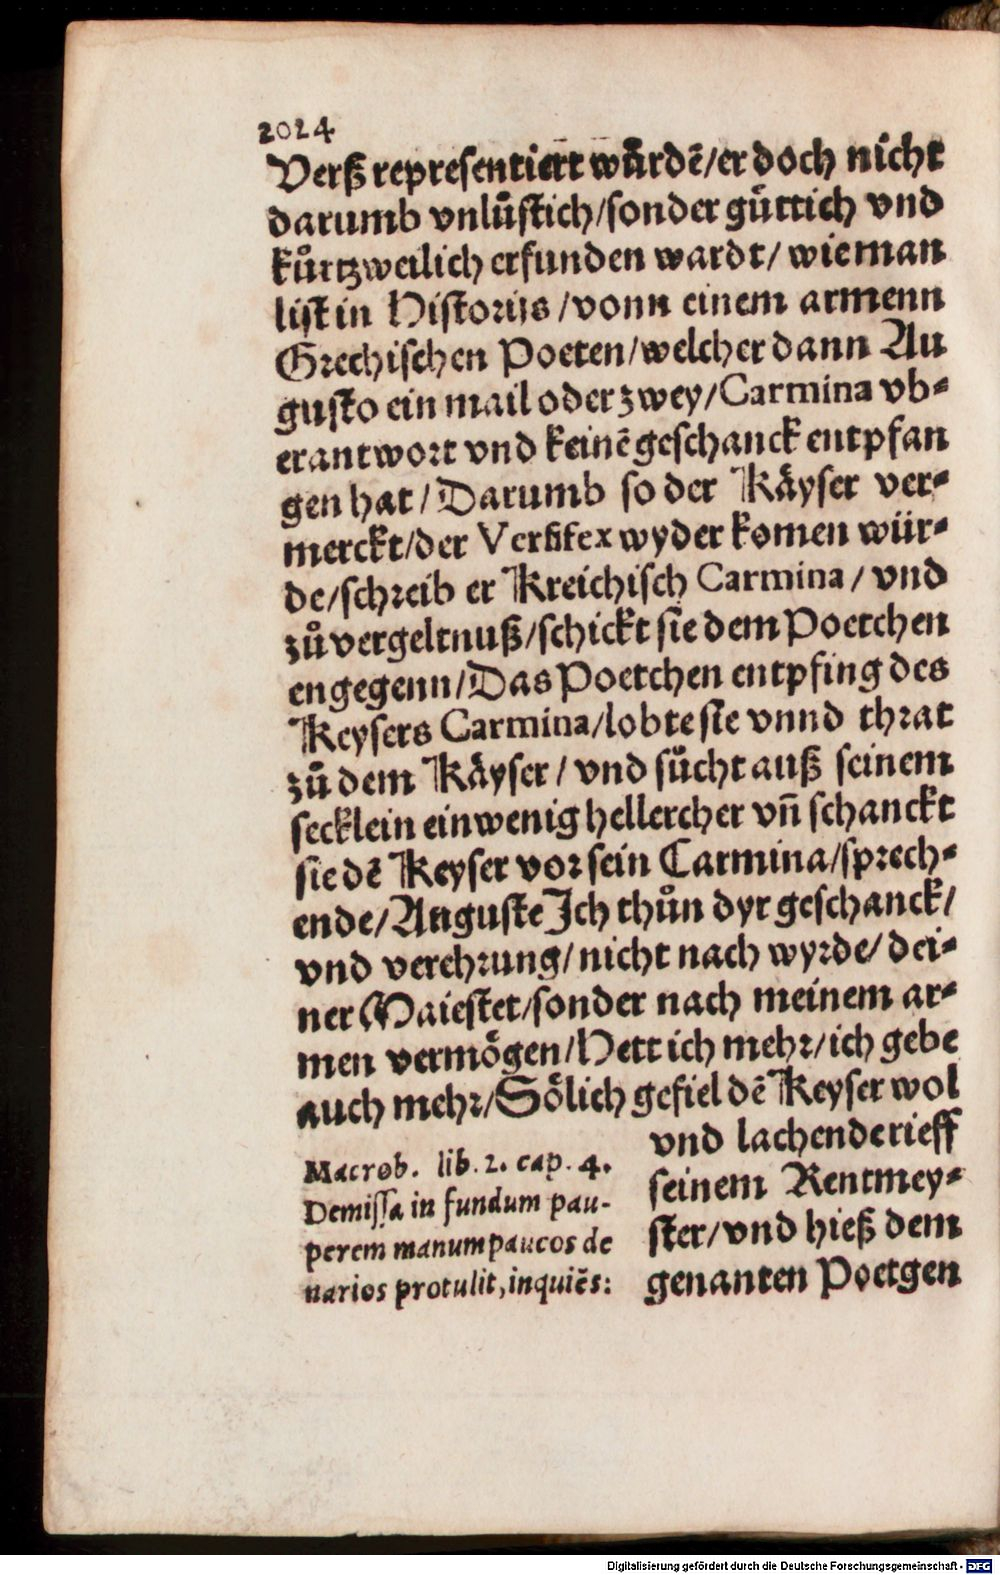 2024
Verß representiert wuͤrdē/er doch nicht
darumb vnluͤstich/sonder guͤttich vnd
kuͤrtzweilich erfunden wardt/ wie man
list in Historijs /vonn einem armenn
Grechischen Poeten/welcher dann Au
gusto ein mail oder zwey/Carmina vb⸗
erantwort vnd keinē geschanck entpfan
gen hat/Darumb so der Käyser ver⸗
merckt/der Versifex wyder komen wür⸗
de/schreib er Kreichisch Carmina/ vnd
zuͦ vergeltnuß/schickt sie dem Poetchen
engegenn/Das Poetchen entpfing des
Keysers Carmina/lobte sie vnnd thrat
zuͦ dem Käyser/ vnd suͦcht auß seinem
secklein ein wenig hellercher vñ schanckt
sie dē Keyser vor sein Carmina/sprech⸗
ende/Anguste Ich thuͦn dyr geschanck/
vnd verehrung/nicht nach wyrde/ dei⸗
ner Maiestet/sonder nach meinem ar⸗
men vermoͤgen/Hett ich mehr/ich gebe
auch mehr/Soͤlich gefiel dē Keyser wol
vnd lachende rieff
seinem Rentmey⸗
ster/vnd hieß dem
genanten Poetgen
Macrob. lib. 2. cap. 4.
Demissa in fundum pau-
perem manum paucos de
narios protulit, inquiēs:
Digitalisierung gefördert durch die Deutsche Forschungsgemeinschaft - DFG